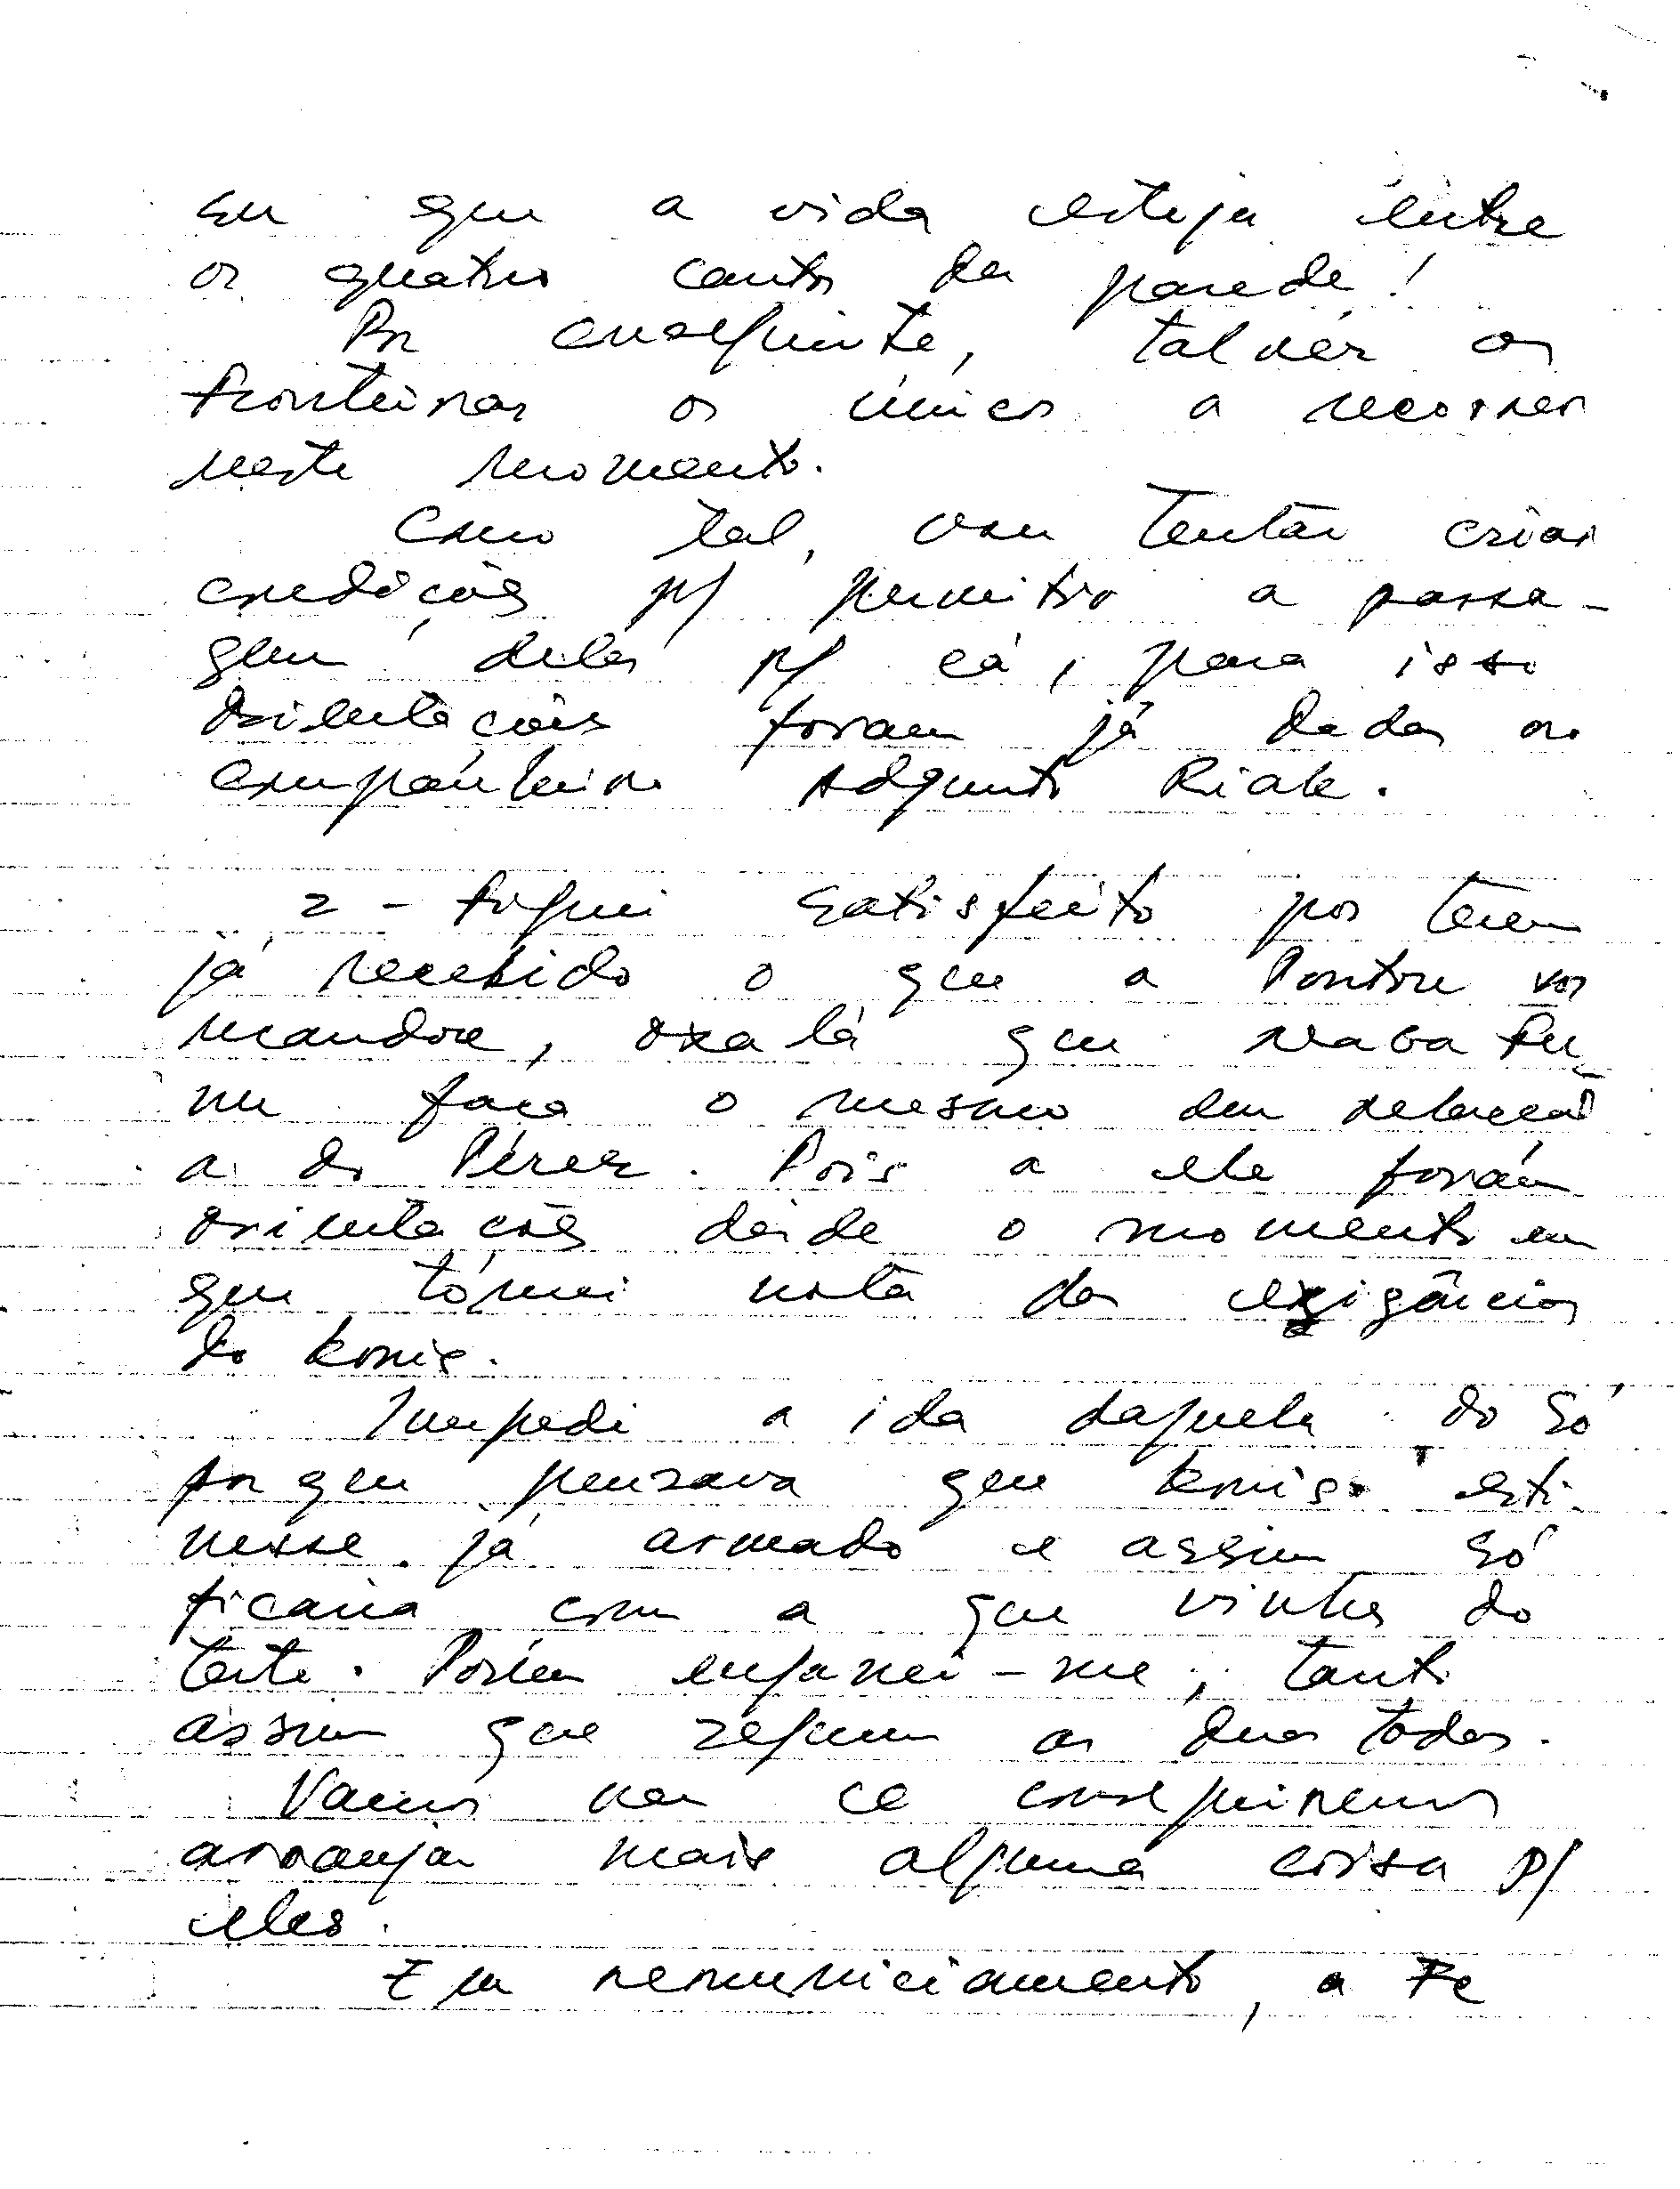 em que a vida esteja entre
os quatro cantos da parede!
Por conseguinte, talvéz as
fronteiras os únicos a recorrer
neste momento.
Como tal, vou tentar criar
condições p/ permitir a passa-
gem deles p/ cá, para isso
orientações foram já dadas ao
companheiro Adjunto Riale.
2 - Fiquei satisfeito por terem
já recebido o que a Pontre vos
mandou, oxalá que
faça o mesmo em relação
a do Pérez. Pois a ele foram
orientações desde o momento em
que tómei nota das exigências
do Konis.
Impedi a ida daquela do só
porque pensava que Konis esti
vesse já armado e assim só
ficaria com a que vinha do
teste. Porém enganei-me, tanto
assim que seguem as duas todas.
Vamos ver se conseguiremos
arranjar mais alguma coisa p/
eles.
Em remuniciamento, a Fe